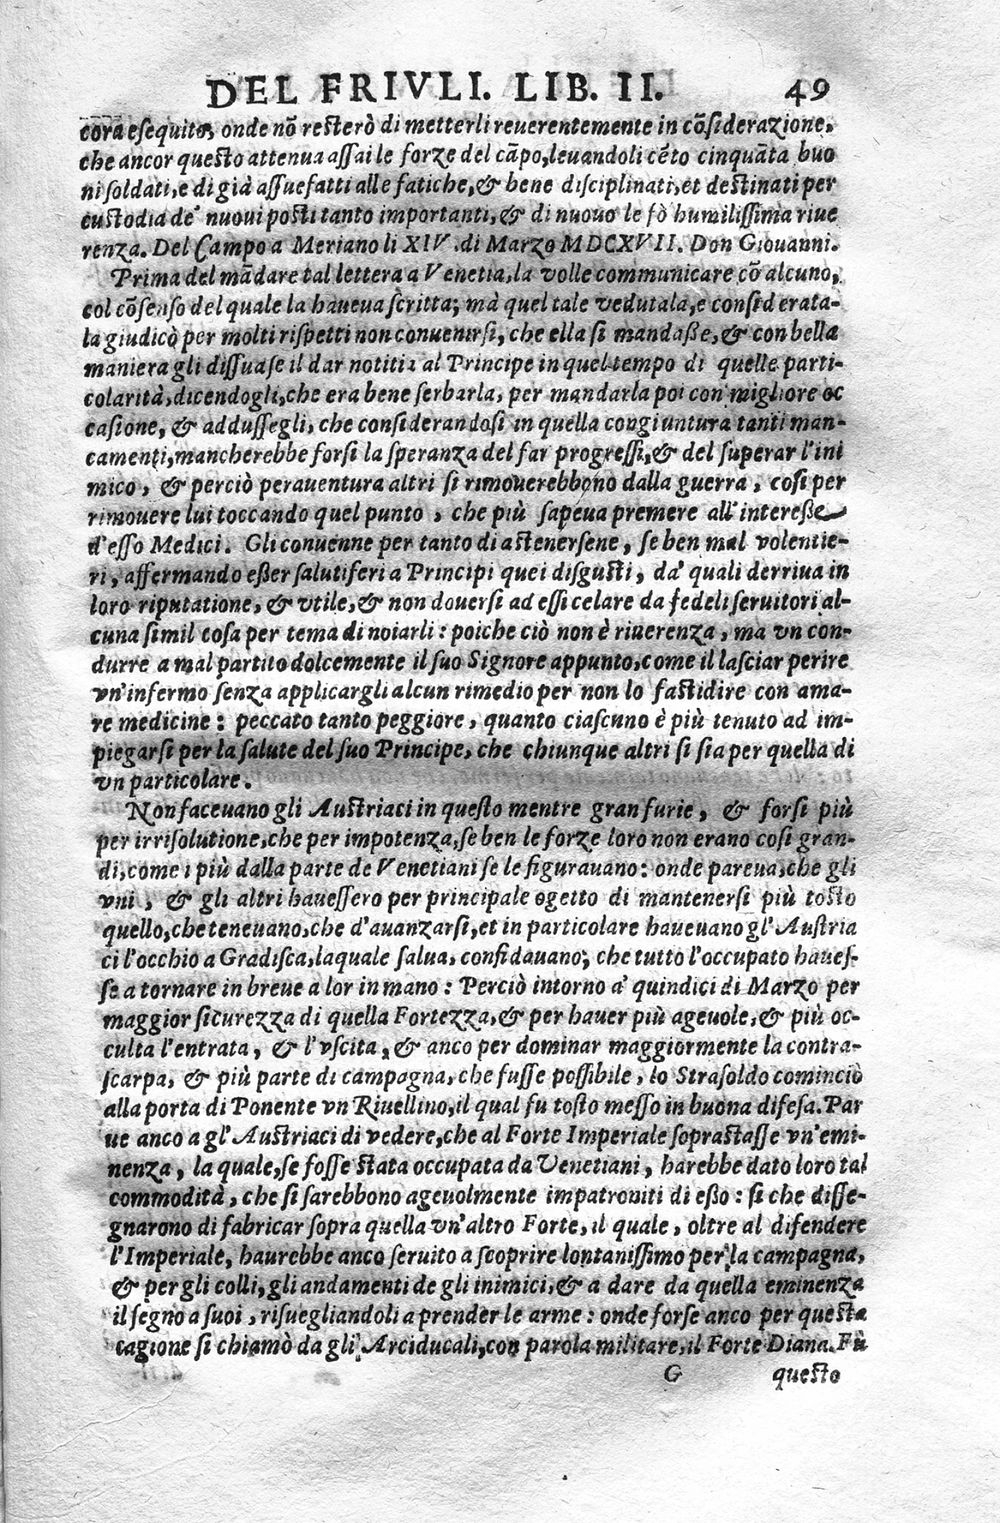 DEL FRIVLI. LIB. II. 49
cora esequito, onde nō resterò di metterli reuerentemente in cōsiderazione,
che ancor questo attenua assai le forze del cāpo, leuandoli cēto cinquāta buo
ni soldati, e di già assuefatti alle fatiche, & bene disciplinati, et destinati per
custodia de' nuoui posti tanto importanti, & di nuouo le fò humilissima riue
renza. Del Campo a Meriano li XIV. di Marzo MDCXVII. Don Giouanni.
Prima del mādare tal lettera a Venetia, la volle communicare cō alcuno,
col cōsenso del quale la haueua scritta; mà quel tale vedutala, e considerata-
la giudicò per molti rispetti non conuenirsi, che ella si mandaße, & con bella
maniera gli dissuase il dar notitia al Principe in quel tempo di quelle parti-
colarità, dicendogli, che era bene serbarla, per mandarla poi con migliore oc
casione, & addussegli, che considerandosi in quella congiuntura tanti man-
camenti, mancherebbe forsi la speranza del far progressi, & del superar l'ini
mico, & perciò perauentura altri si rimouerebbono dalla guerra, cosi per
rimouere lui toccando quel punto, che più sapeua premere all'intereße
d'esso Medici. Gli conuenne per tanto di astenersene, se ben mal volentie-
ri, affermando eßer salutiferi a Principi quei disgusti, da' quali derriua in
loro riputatione, & vtile, & non douersi ad essi celare da fedeli seruitori al-
cuna simil cosa per tema di noiarli: poiche ciò non è riuerenza, ma vn con-
durre a mal partito dolcemente il suo Signore appunto, come il lasciar perire
vn'infermo senza applicargli alcun rimedio per non lo fastidire con ama-
re medicine: peccato tanto peggiore, quanto ciascuno è più tenuto ad im-
piegarsi per la salute del suo Principe, che chiunque altri si sia per quella di
vn particolare.
Non faceuano gli Austriaci in questo mentre gran furie, & forsi più
per irrisolutione, che per impotenza, se ben le forze loro non erano cosi gran-
di, come i più dalla parte de Venetiani se le figurauano: onde pareua, che gli
vni, & gli altri hauessero per principale ogetto di mantenersi più tosto
quello, che teneuano, che d'auanzarsi, et in particolare haueuano gl'Austria
ci l'occhio a Gradisca, laquale salua, confidauano, che tutto l'occupato haues-
se a tornare in breue a lor in mano: Perciò intorno a' quindici di Marzo per
maggior sicurezza di quella Fortezza, & per hauer più ageuole, & più oc-
culta l'entrata, & l'vscita, & anco per dominar maggiormente la contra-
scarpa, & più parte di campagna, che fusse possibile, lo Strasoldo cominciò
alla porta di Ponente vn Riuellino, il qual fu tosto messo in buona difesa. Par
ue anco a gl'Austriaci di vedere, che al Forte Imperiale soprastasse vn'emi-
nenza, la quale, se fosse stata occupata da Venetiani, harebbe dato loro tal
commodità, che si sarebbono ageuolmente impatroniti di eßo: si che disse-
gnarono di fabricar sopra quella vn'altro Forte, il quale, oltre al difendere
l'Imperiale, haurebbe anco seruito a scoprire lontanissimo per la campagna,
& per gli colli, gli andamenti de gli inimici, & a dare da quella eminenza
il segno a suoi, risuegliandoli a prender le arme: onde forse anco per questa
cagione si chiamò da gli Arciducali, con parola militare, il Forte Diana. Fù
G questo